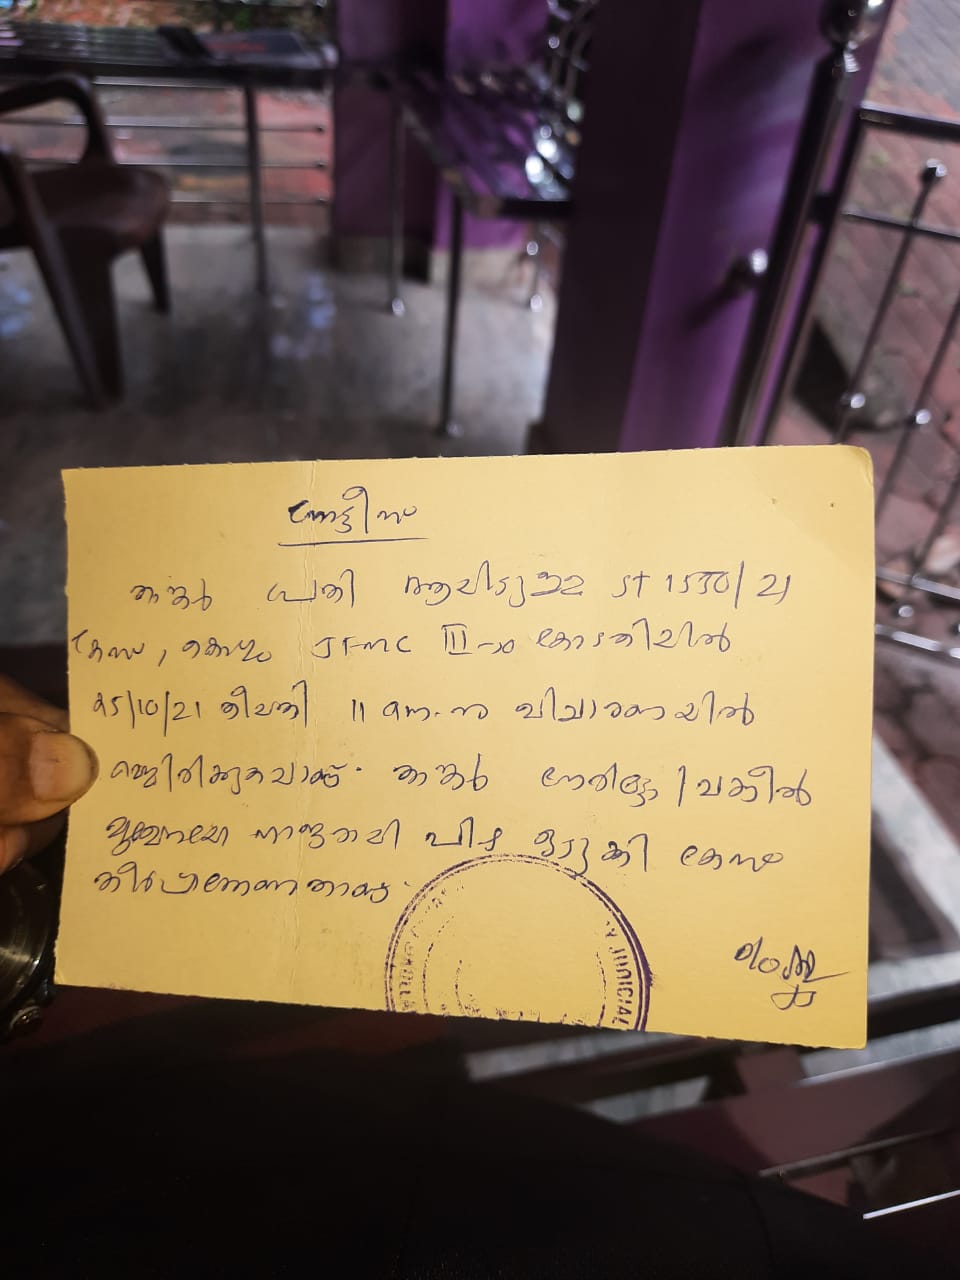 നോട്ടീസ്
താങ്കൾ പ്രതി ആയിട്ടുള്ള ST 1550/21
കേസ്, കൊല്ലം JFMC III-ാം കോടതിയിൽ
25/10/21 തീയതി 11 മണിക്ക് വിചാരണയിൽ
താങ്കൾ നേരിട്ടോ / വക്കീൽ
മുഖേനയോ ഹാജരായി പിഴ ഒടുക്കി കേസ്
തീർപ്പാക്കേണ്ടതാണ്.
JUDICIAL